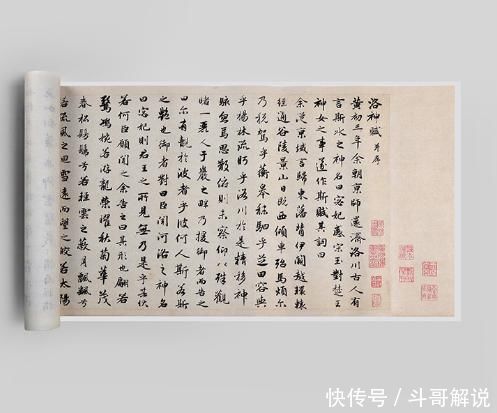 洛神賦 并序
黃初三年余朝京師還濟洛川古人有
言斯水之神名曰宓妃感宋玉對楚王
神女之事遂作斯賦其詞曰
余從京域言歸東藩背伊闕越轘轅
經通谷陵景山日既西傾車殆馬煩爾
乃稅駕乎蘅皋秣駟乎芝田容與
乎楊林流眄乎洛川於是精移神
駭焉思散俯則未察仰以殊觀
睹一麗人于巖之畔乃援御者而告之
曰爾有覿於彼者乎彼何人斯若斯
之艷也御者對曰臣聞河洛之神名
曰宓妃則君王之所見無乃是乎其狀
若何臣願聞之余告之曰其形也翩若
驚鴻婉若游龍榮曜秋菊華茂
春松髣髴兮若輕雲之蔽月飄飄兮
若流風之迴雪遠而望之皎若太陽
快传号 / 斗哥解说